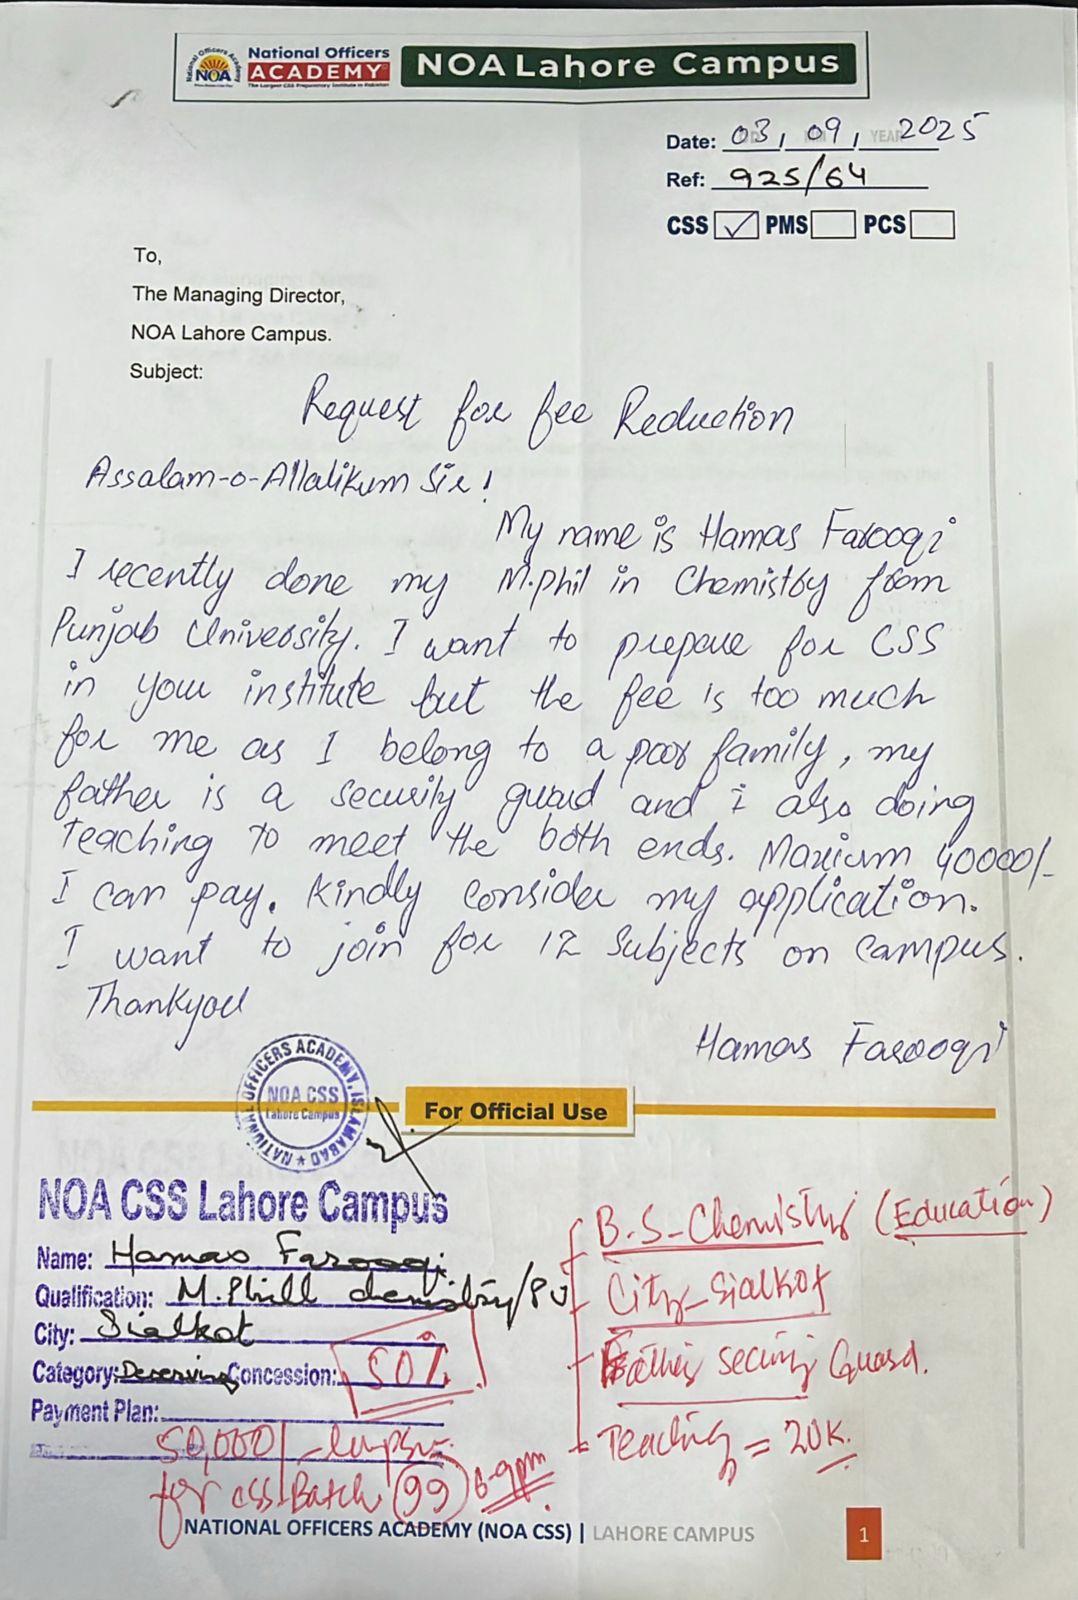 National Officers Academy
NOA
National Officers
ACADEMY
The Largest CSS Preparatory Institute in Pakistan
NOA Lahore Campus
Date: 03, 09, 2025
Ref: 925/64
CSS ✓ PMS PCS
To,
The Managing Director,
NOA Lahore Campus.
Subject:
Request for fee Reduction
Assalam-o-Allalikum Sir!
My name is Hamas Farooqi
I recently done my M.phil in Chemistry from
Punjab University. I want to prepare for CSS
in your institute but the fee is too much
for me as I belong to a poor family, my
father is a security guard and i also doing
teaching to meet the both ends. Maxium 40000/-
I can pay. Kindly consider my application.
I want to join for 12 Subjects on campus.
Thankyou
Hamas Farooqi
NATIONAL OFFICERS ACADEMY, ISLAMABAD
NOA CSS
Lahore Campus
For Official Use
NOA CSS Lahore Campus
Name: Hamas Farooqi
Qualification: M.Phill chemistry/PU
City: Sialkot
Category: Deserving Concession: 50%
Payment Plan:
50,000/-
for CSS Batch (99) 6-9pm
B.S-Chemistry (Education)
City-Sialkot
Father security Guard.
Teaching = 20K.
NATIONAL OFFICERS ACADEMY (NOA CSS) | LAHORE CAMPUS
1